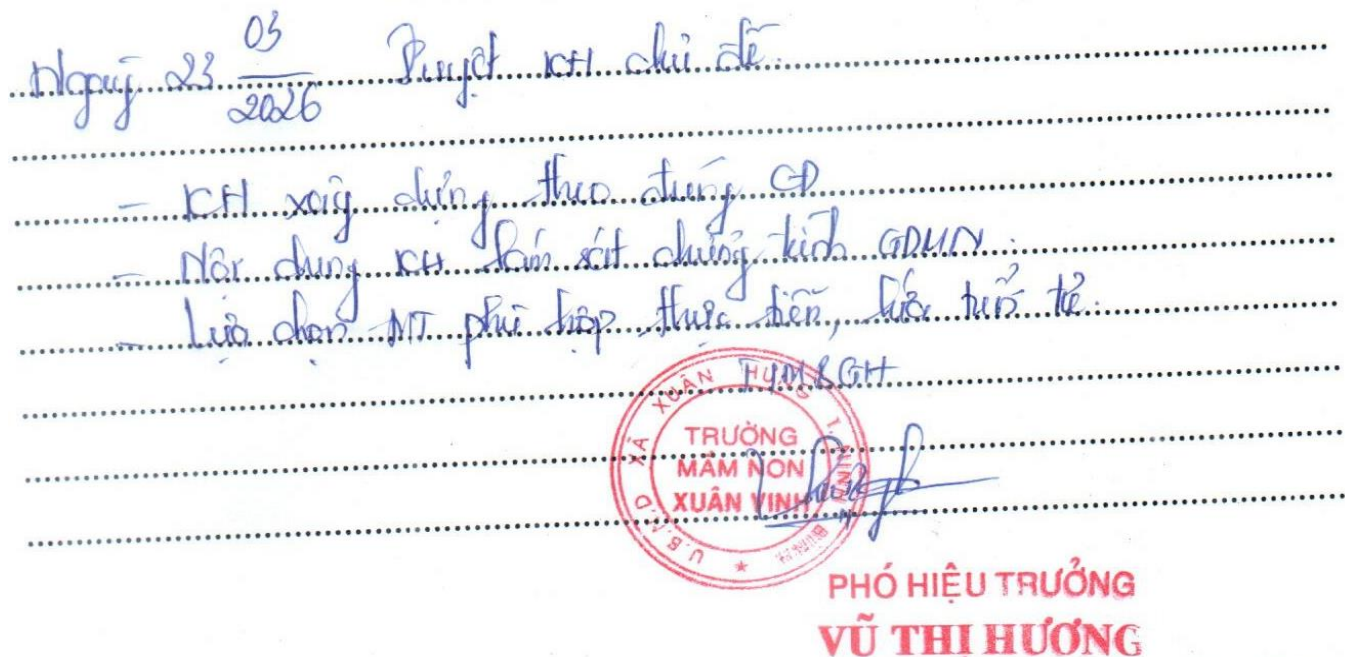 Ngày 23 03/2026 Duyệt KH chủ đề.
- KH xây dựng theo đúng CĐ
- Nội dung KH bám sát chương trình GDMN.
- Lựa chọn MT phù hợp thực tiễn, lứa tuổi trẻ.
T/M BGH
U.B.N.D XÃ XUÂN HƯNG T. NINH BÌNH
TRƯỜNG
MẦM NON
XUÂN VINH
PHÓ HIỆU TRƯỞNG
VŨ THỊ HƯƠNG